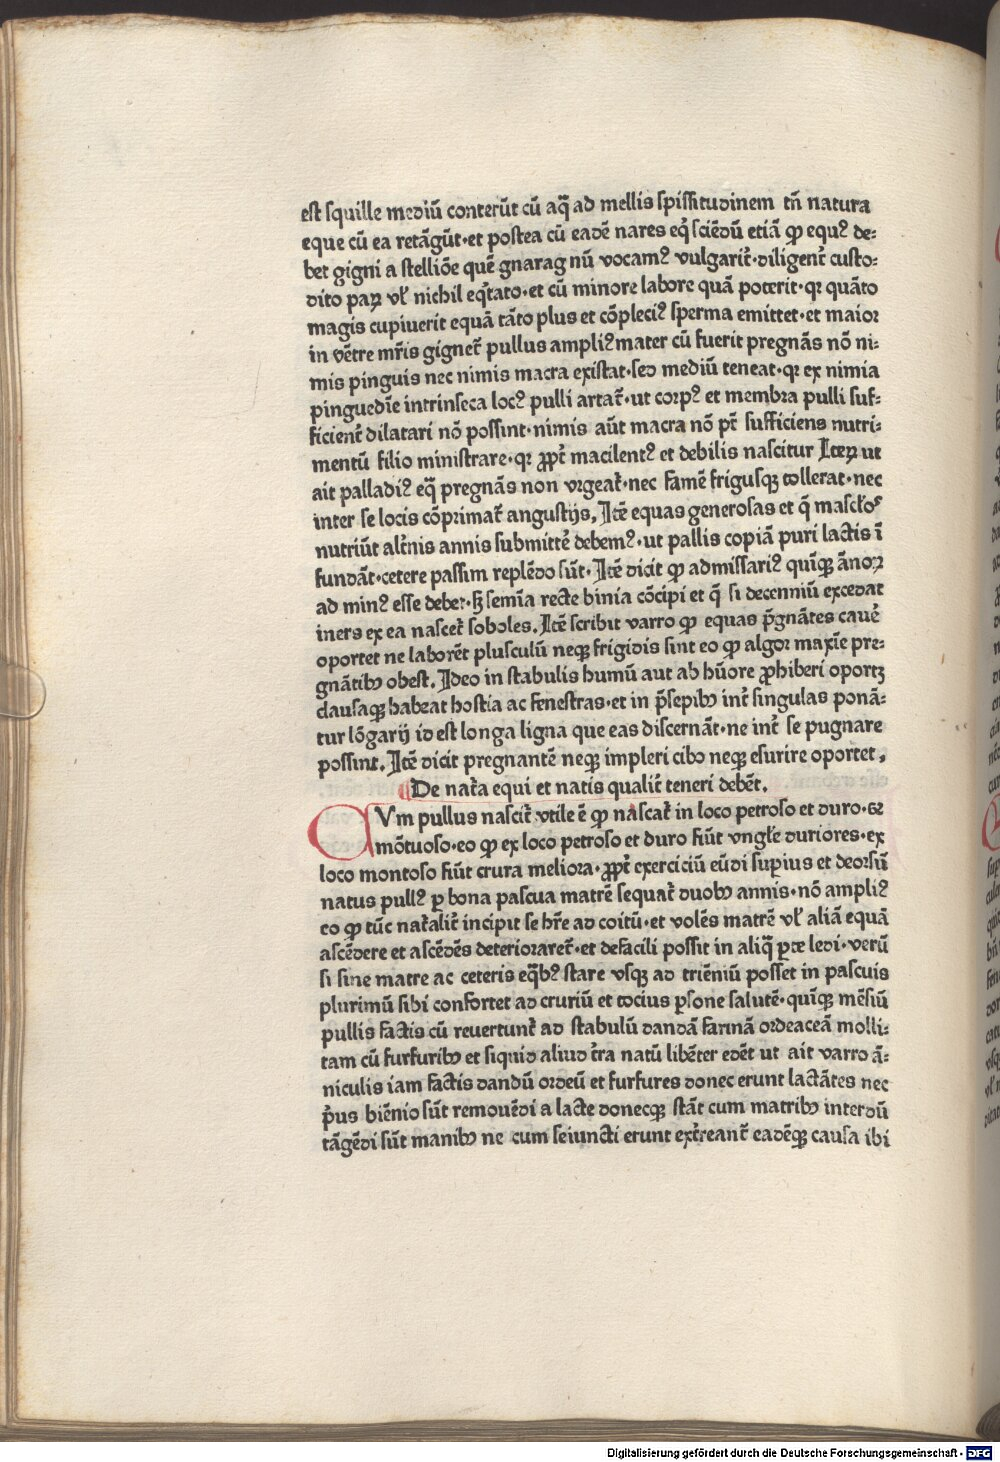 est squille mediū conterūt cū aq̄ ad mellis spissitudinem tn̄ natura
eque cū ea retāgūt·et postea cū eadē nares eq̇ sciēdū etiā ꝙ equꝰ de⸗
bet gigni a stelliōe quē gnarag nū vocamꝰ vulgarit᷑·diligent᷑ custo⸗
dito paꝝ vl̓ nichil eq᷑tato·et cū minore labore quā poterit·qꝛ quāto
magis cupiuerit equā tāto plus et cōplecꝰ sperma emittet·et maioꝛ
in vētre mr̄is gignet᷑ pullus ampliꝰ mater cū fuerit pregnās nō ni⸗
mis pinguis nec nimis macra existat·sed mediū teneat·qꝛ ex nimia
pinguedīe intrinseca locꝰ pulli artat᷑·ut coꝛpꝰ et membꝛa pulli suf⸗
ficient᷑ dilatari nō possint·nimis aūt macra nō pt̄ sufficiens nutri⸗
mentū filio ministrare·qꝛ ꝓpt᷑ macilentꝰ et debilis nascitur Iteꝝ ut
ait palladiꝰ eq̄ pregnās non vrgeat᷑·nec famē frigusqꝫ tollerat·nec
inter se locis cōprimat᷑ angustijs, Itē equas generosas et q̄ mascl̓os
nutriūt alt᷑nis annis submitte᷑ debemꝰ·ut pallis copiā puri lactis ī
fundāt·cetere passim replēdo sūt·Itē dicit ꝙ admissariꝰ quīqꝫ ānoꝝ
ad minꝰ esse debet·sꝫ semīa recte binia cōcipi et q̄ si decenniū excedat
iners ex ea nascet᷑ soboles. Itē scribit varro ꝙ equas p̄gnātes caue᷑
oportet ne laborēt plusculū neqꝫ frigidis sint eo ꝙ algoꝛ maxīe pre⸗
gnātibꝫ obest. Ideo in stabulis humū aut ab hūore ꝓhiberi oportꝫ
clausaqꝫ habeat hostia ac fenestras·et in p̄sepibꝫ int᷑ singulas ponā⸗
tur lōgarij id est longa ligna que eas discernāt·ne int᷑ se pugnare
possint. Itē dicit pregnantē neqꝫ impleri cibo neqꝫ esurire oportet,
De nat᷑a equi et natis qualit᷑ teneri debēt.
CVm pullus nascit᷑ vtile ē ꝙ nascat᷑ in loco petroso et duro·&
mōtuoso·eo ꝙ ex loco petroso et duro fiūt vngl̓e duriores·ex
loco montoso fiūt crura meliora·ꝓpt᷑ exerciciū eūdi suꝑius et deoꝛsū
natus pullꝰ ꝑ bona pascua matrē sequat᷑ duobꝫ annis·nō ampliꝰ
eo ꝙ tūc nat᷑alit᷑ incipit se hr̄e ad coitū·et volēs matrē vl̓ aliā equā
ascēdere et ascēdēs deterioraret᷑·et defacili possit in aliq̄ ꝑte ledi·verū
si sine matre ac ceteris eq̄bꝰ stare vsqꝫ ad triēniū posset in pascuis
plurimū sibi confortet ad cruriū et tocius ꝑsone salutē·quīqꝫ mēsiū
pullis factis cū reuertunt᷑ ad stabulū dandā farinā oꝛdeaceā molli⸗
tam cū furfuribꝫ et siquid aliud t᷑ra natū libēter edēt ut ait varro ā⸗
niculis iam factis dandū oꝛdeū et furfures donec erunt lactātes nec
p᷑us biēnio sūt remouēdi a lacte donecqꝫ stāt cum matribꝫ interdū
tāgēdi sūt manibꝫ ne cum seiuncti erunt ext᷑reant᷑ eadēqꝫ causa ibi
Digitalisierung gefördert durch die Deutsche Forschungsgemeinschaft - DFG